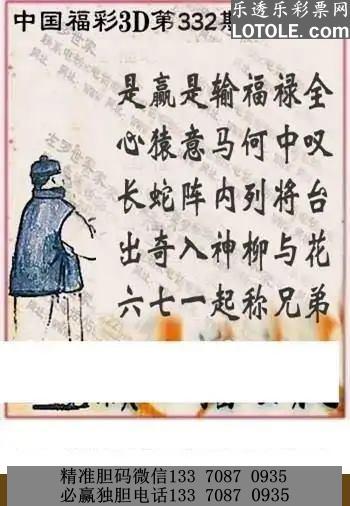 中国福彩3D第332期
乐透乐彩票网
LOTOLE.COM
是赢是输福禄全
心猿意马何中叹
长蛇阵内列将台
出奇入神柳与花
六七一起称兄弟
精准胆码微信133 7087 0935
必赢独胆电话133 7087 0935